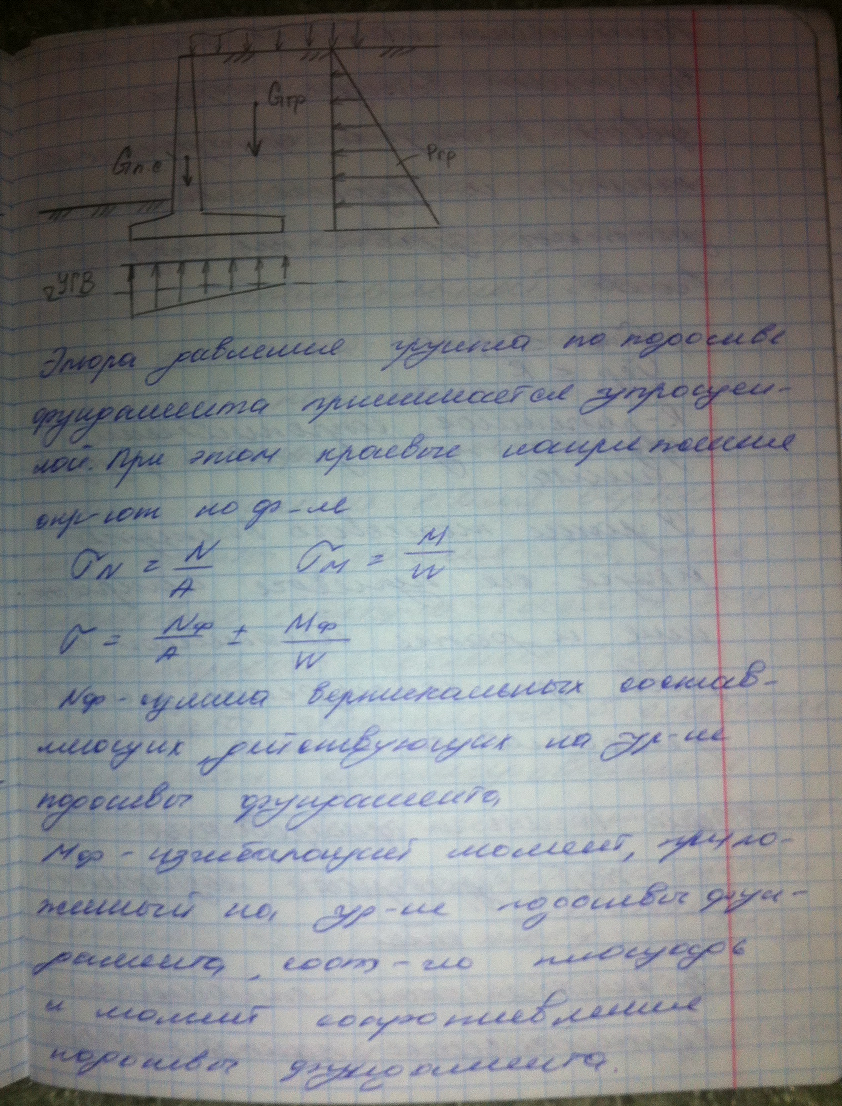 Gгр
Gп.с
Pгр
УГВ
Эпюра давления грунта по подошве
фундамента принимается упрощен-
ной. При этом краевые напряжения
опр-ют по ф-ле
σN = N/A   σM = M/W
σ = Nф/A ± Mф/W
Nф - сумма вертикальных состав-
ляющих, действующих на ур-не
подошвы фундамента,
Mф - изгибающий момент, прило-
женный на ур-не подошвы фун-
дамента, соот-но площадь
и момент сопротивления
подошвы фундамента.